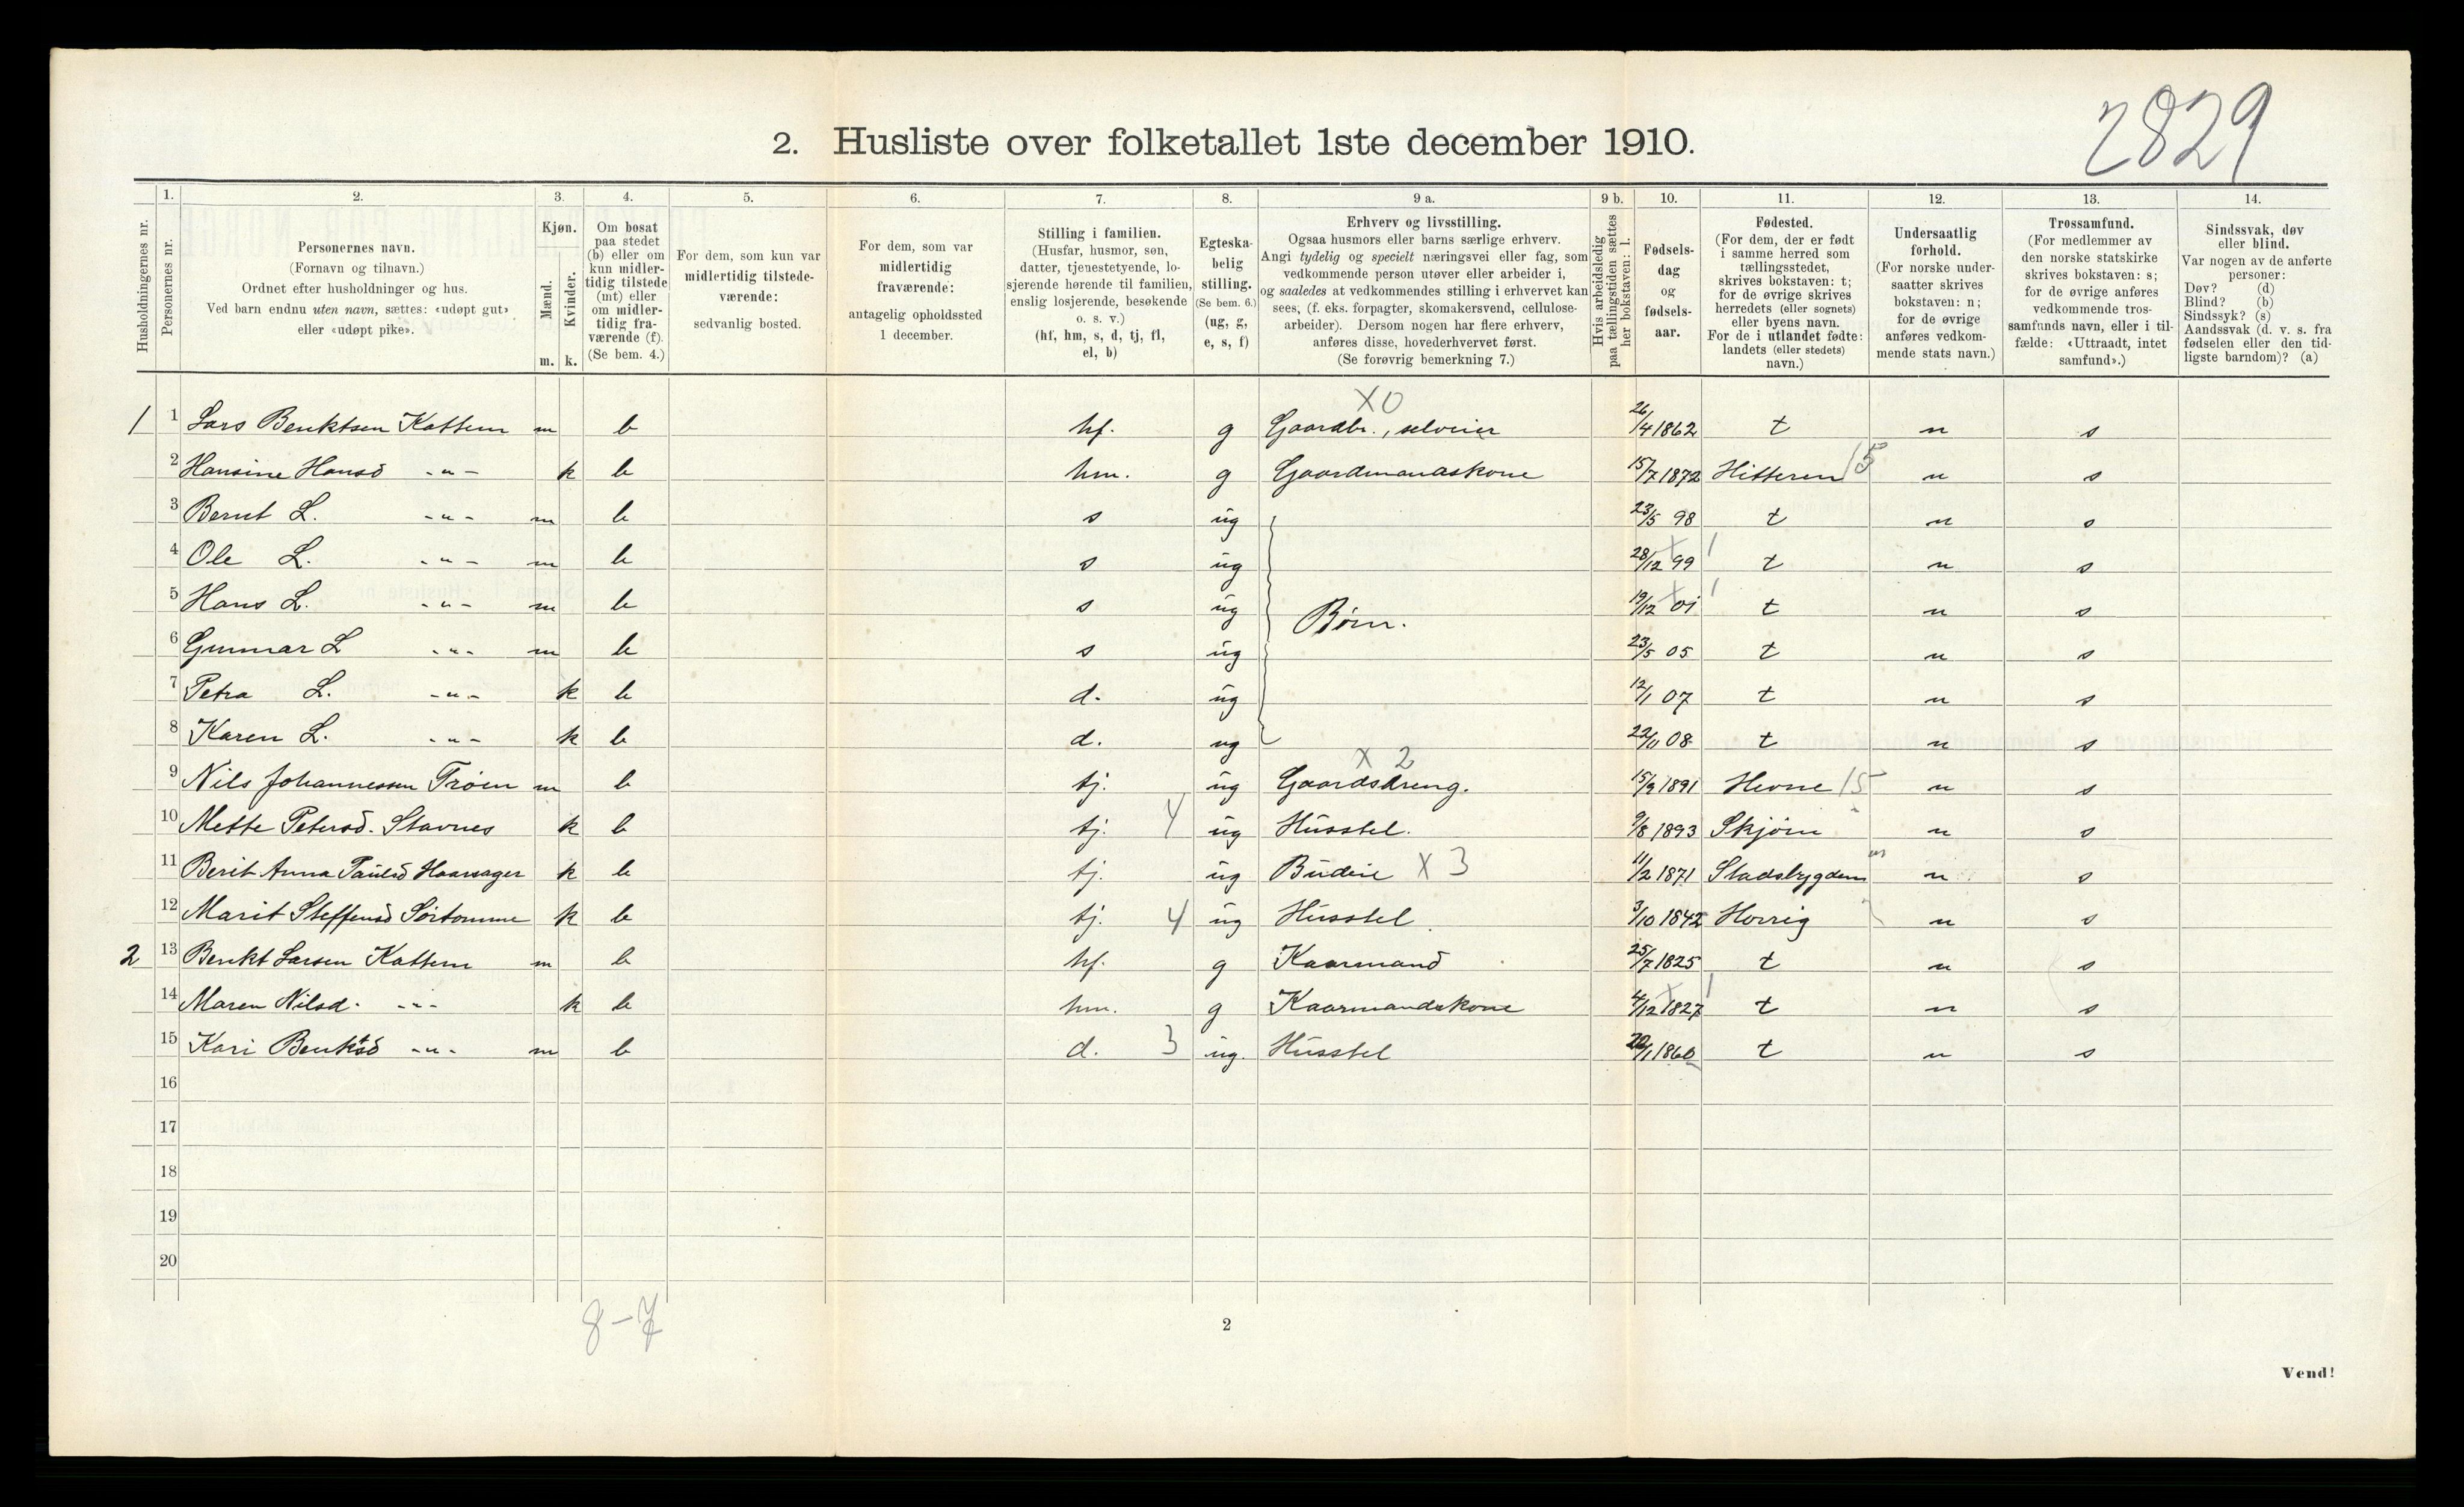 2829
2. Husliste over folketallet 1ste december 1910.
Husholdningernes nr.
1. Personernes nr.
2. Personernes navn. (Fornavn og tilnavn.) Ordnet efter husholdninger og hus. Ved barn endnu uten navn, sættes: «udøpt gut» eller «udøpt pike».
3. Kjøn. Mænd. m. Kvinder. k.
4. Om bosat paa stedet (b) eller om kun midlertidig tilstede (mt) eller om midlertidig fraværende (f). (Se bem. 4.)
5. For dem, som kun var midlertidig tilstedeværende: sedvanlig bosted.
6. For dem, som var midlertidig fraværende: antagelig opholdssted 1 december.
7. Stilling i familien. (Husfar, husmor, søn, datter, tjenestetyende, losjerende hørende til familien, enslig losjerende, besøkende o. s. v.) (hf, hm, s, d, tj, fl, el, b)
8. Egteskabelig stilling. (Se bem. 6.) (ug, g, e, s, f)
9 a. Erhverv og livsstilling. Ogsaa husmors eller barns særlige erhverv. Angi tydelig og specielt næringsvei eller fag, som vedkommende person utøver eller arbeider i, og saaledes at vedkommendes stilling i erhvervet kan sees, (f. eks. forpagter, skomakersvend, cellulosearbeider). Dersom nogen har flere erhverv, anføres disse, hovederhvervet først. (Se forøvrig bemerkning 7.)
9 b. Hvis arbeidsledig paa tællingstiden sættes her bokstaven: l.
10. Fødselsdag og fødselsaar.
11. Fødested. (For dem, der er født i samme herred som tællingsstedet, skrives bokstaven: t; for de øvrige skrives herredets (eller sognets) eller byens navn. For de i utlandet fødte: landets (eller stedets) navn.)
12. Undersaatlig forhold. (For norske undersaatter skrives bokstaven: n; for de øvrige anføres vedkommende stats navn.)
13. Trossamfund. (For medlemmer av den norske statskirke skrives bokstaven: s; for de øvrige anføres vedkommende trossamfunds navn, eller i tilfælde: «Uttraadt, intet samfund».)
14. Sindssvak, døv eller blind. Var nogen av de anførte personer: Døv? (d) Blind? (b) Sindssyk? (s) Aandssvak (d. v. s. fra fødselen eller den tidligste barndom)? (a)
X0
1 1 Lars Benktsen Kattem m b hf. g Gaardbr., selveier 26/4 1862 t n s
2 Hansine Hansd -"- k b hm. g Gaardmandskone 15/7 1872 Hitteren 15 n s
3 Bernt L. -"- m b s ug 23/5 98 t n s
4 Ole L. -"- m b s ug 28/12 99 t n s
5 Hans L. -"- m b s ug Børn. 19/12 01 t n s
6 Gunnar L -"- m b s ug 23/5 05 t n s
7 Petra L. -"- k b d. ug 12/1 07 t n s
8 Karen L. -"- k b d. ug 22/11 08 t n s
X 2
9 Nils Johannessen Trøen m b tj. ug Gaardsdreng. 15/9 1891 Hevne 15 n s
10 Mette Petersd. Stavnes k b tj. 4 ug Husstel. 9/8 1893 Skjørn n s
11 Berit Anna Paulsd Haarsager k b tj. ug Budeie X 3 11/2 1871 Stadsbygden n s
12 Marit Steffensd Sørtømme k b tj. 4 ug Husstel. 3/10 1842 Horrig n s
2 13 Benkt Larsen Kattem m b hf. g Kaarmand 25/7 1825 t n s
14 Maren Nilsd. -"- k b hm. g Kaarmandskone 4/12 1827 t n s
15 Kari Benktsd -"- m b d. 3 ug. Husstel 1860 t n s
16
17
18
19
20
8-7
2
Vend!